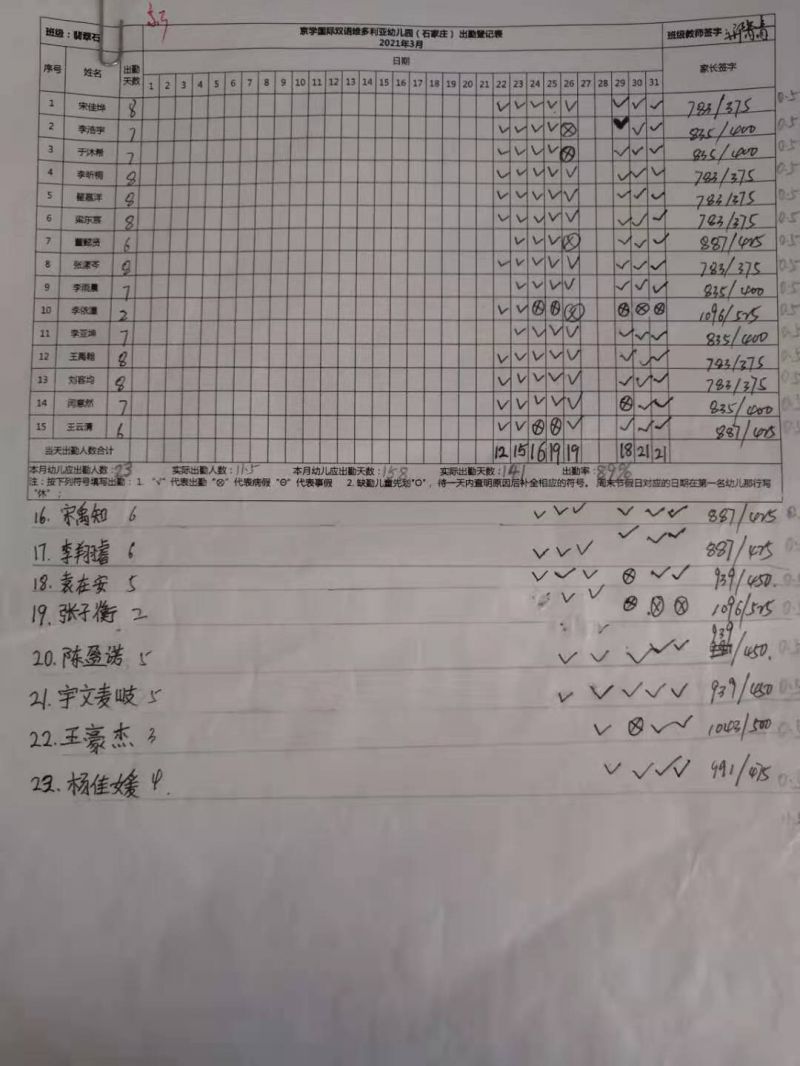 班级：翡翠石 京学国际双语维多利亚幼儿园（石家庄） 出勤登记表 班级教师签字
2021年3月
序号 姓名 出勤天数 日期 家长签字
1 2 3 4 5 6 7 8 9 10 11 12 13 14 15 16 17 18 19 20 21 22 23 24 25 26 27 28 29 30 31
1 宋佳烨 8 √ √ √ √ √ √ √ √ 783/375 0.5
2 李浩宇 7 √ √ √ √ ⊗ √ √ √ 835/400 0.5
3 于沐希 7 √ √ √ √ ⊗ √ √ √ 835/400 0.5
4 李昕梅 8 √ √ √ √ √ √ √ √ 783/375 0.5
5 翟嘉洋 8 √ √ √ √ √ √ √ √ 783/375
6 梁东宸 8 √ √ √ √ √ √ √ √ 783/375
7 董懿贤 6 √ √ √ ⊗ √ √ √ 887/425 0.5
8 张潇岑 8 √ √ √ √ √ √ √ √ 783/375
9 李雨晨 7 √ √ √ √ √ √ √ 835/400
10 李依潼 2 √ √ ⊗ ⊗ ⊗ ⊗ ⊗ ⊗ 1096/525 0.5
11 李亚坤 7 √ √ √ √ √ √ √ 835/400
12 王禹翰 8 √ √ √ √ √ √ √ √ 783/375
13 刘容均 8 √ √ √ √ √ √ √ √ 783/375
14 闵意然 7 √ √ √ √ √ ⊗ √ √ 835/400
15 王云清 6 √ √ ⊗ ⊗ √ √ √ √ 887/425
当天出勤人数合计 12 15 16 19 19 18 21 21
本月幼儿应出勤人数：23 实际出勤人数：11.5 本月幼儿应出勤天数：158 实际出勤天数：141 出勤率：89%
注：按下列符号填写出勤：1. "√" 代表出勤 "⊗" 代表病假 "Θ" 代表事假 2. 缺勤儿童先划"O"，待一天内查明原因后补全相应的符号。周末节假日对应的日期在第一名幼儿那行写
"休"；
16. 宋禹知 6 √ √ √ √ √ √ 887/425
17. 李翔睿 6 √ √ √ √ √ √ 887/425
18. 袁在安 5 √ √ √ ⊗ √ √ 939/450.
19. 张子衡 2 √ √ ⊗ ⊗ ⊗ 1096/525
20. 陈盈诺 5 √ √ √ √ √ 939/450.
21. 宇文麦岐 5 √ √ √ √ √ 939/450
22. 王豪杰 3 √ ⊗ √ √ 1043/500
23. 杨佳媛 4. √ √ √ √ 991/475